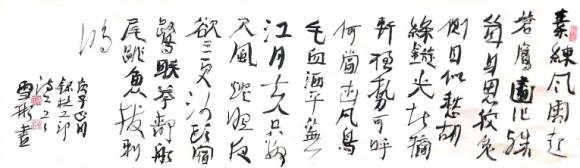 素練風霜起
蒼鷹畫作殊
㧐身思狡兔
側目似愁胡
絛鏇光堪摘
軒楹勢可呼
何當擊凡鳥
毛血灑平蕪
江月去人只數
尺風燈照夜
欲三更沙頭宿
鷺聯拳靜船
尾跳魚撥剌
鳴
庚子正月
錄杜工部
詩二首
書